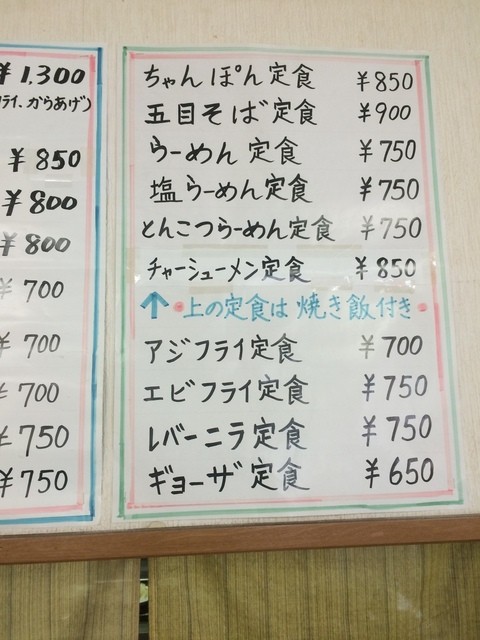 ¥1,300
ライ、からあげ)
¥850
¥800
¥800
¥700
¥700
¥700
¥750
¥750
ちゃんぽん定食 ¥850
五目そば定食 ¥900
らーめん定食 ¥750
塩らーめん定食 ¥750
とんこつらーめん定食 ¥750
チャーシューメン定食 ¥850
↑ ・上の定食は 焼き飯付き・
アジフライ定食 ¥700
エビフライ定食 ¥750
レバーニラ定食 ¥750
ギョーザ定食 ¥650